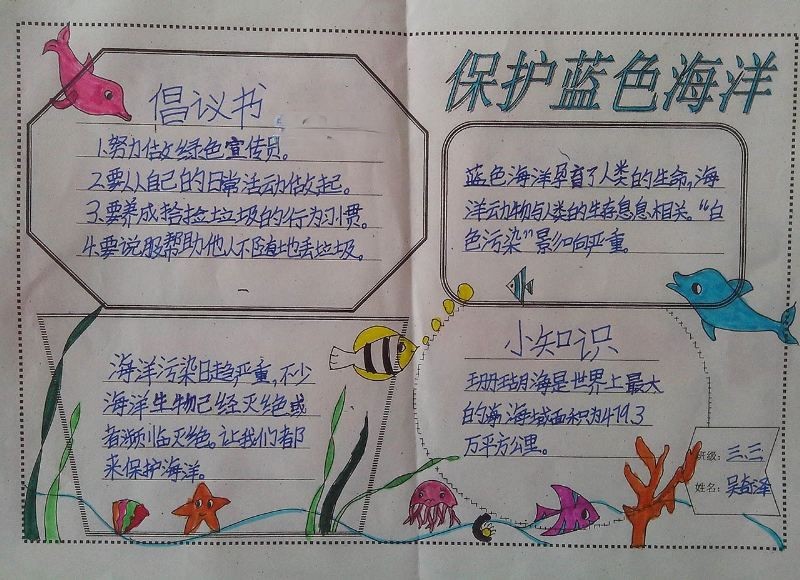 倡议书
1.努力做绿色宣传员。
2.要从自己的日常活动做起。
3.要养成捡捡垃圾的行为习惯。
4.要说服帮助他人不随地丢垃圾。
保护蓝色海洋
蓝色海洋孕育了人类的生命,海
洋动物与人类的生存息息相关。“白
色污染”影响严重。
海洋污染日趋严重,不少
海洋生物已经灭绝或
者濒临灭绝。让我们都
来保护海洋。
小知识
珊瑚海是世界上最大
的海,海域面积为479.3
万平方公里。
班级: 三.三
姓名: